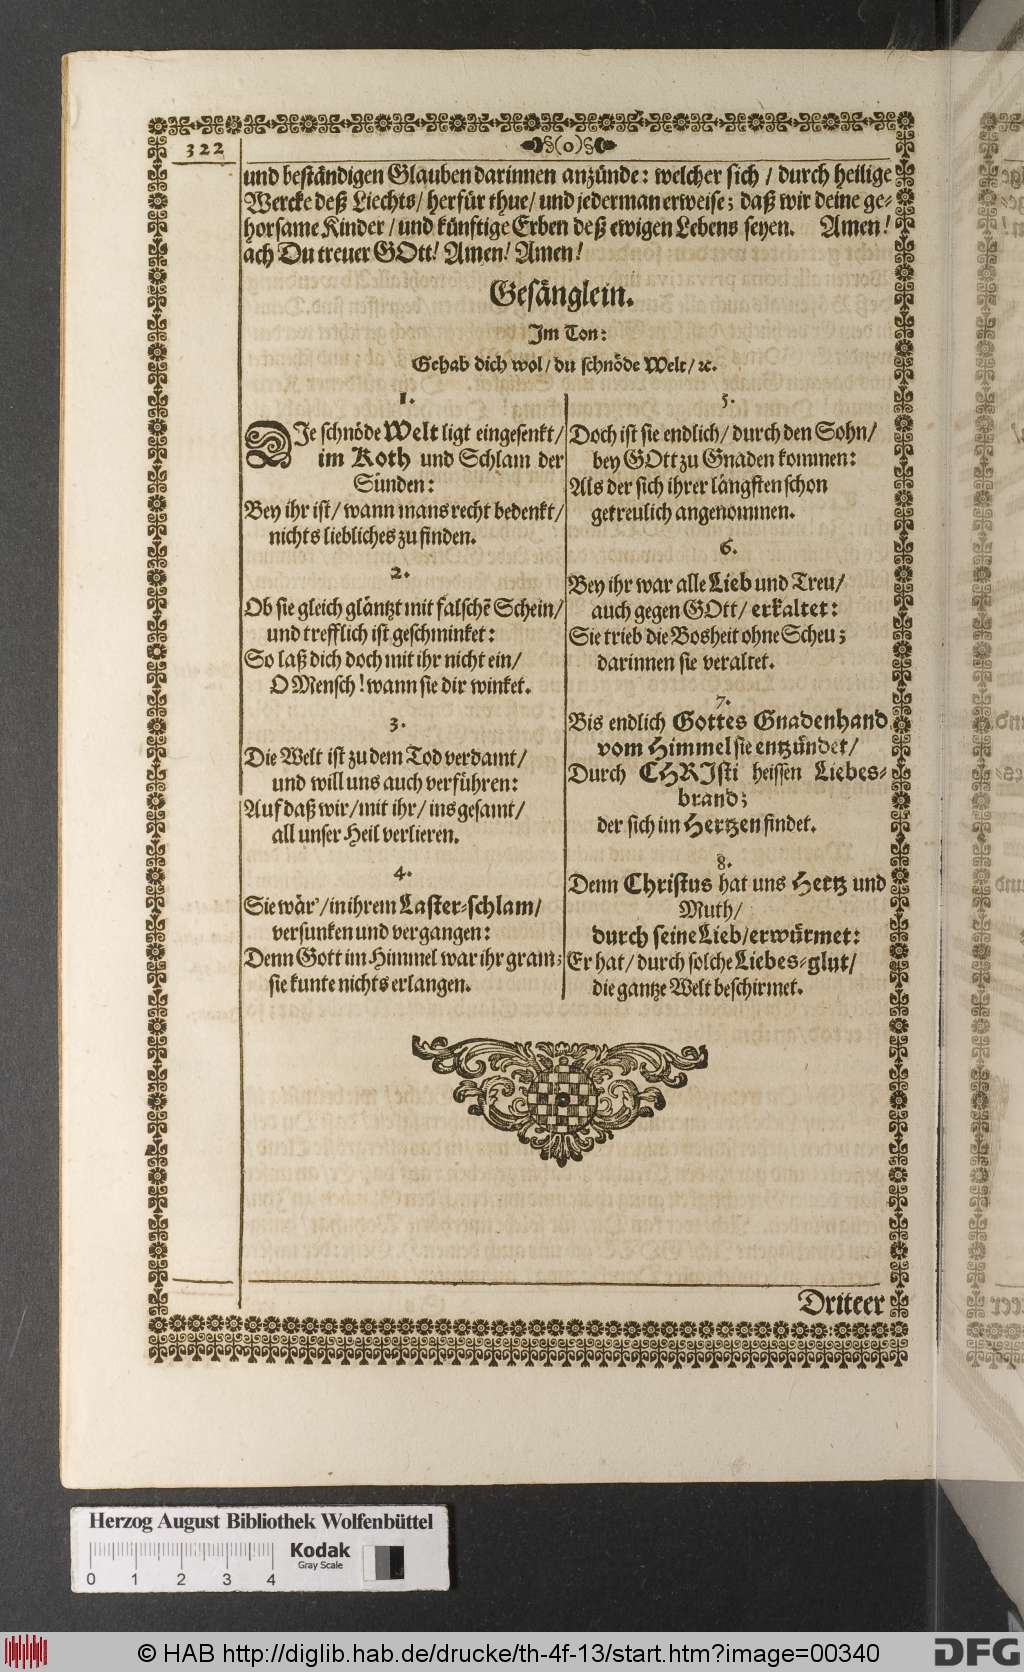 322
(o)
und beständigen Glauben darinnen anzünde: welcher sich / durch heilige
Wercke deß Liechts / herfür thue / und jederman erweise; daß wir deine ge-
horsame Kinder / und künftige Erben deß ewigen Lebens seyen. Amen!
ach Du treuer GOtt! Amen! Amen!
Gesänglein.
Im Ton:
Gehab dich wol / du schnöde Welt / ꝛc.
1.
DIe schnöde Welt ligt eingesenkt /
im Koth und Schlam der
Sünden:
Bey ihr ist / wann mans recht bedenkt /
nichts liebliches zu finden.
2.
Ob sie gleich gläntzt mit falschẽ Schein /
und trefflich ist geschminket:
So laß dich doch mit ihr nicht ein /
O Mensch! wann sie dir winket.
3.
Die Welt ist zu dem Tod verdamt /
und will uns auch verführen:
Auf daß wir / mit ihr / ins gesamt /
all unser Heil verlieren.
4.
Sie wär' / in ihrem Laster-schlam /
versunken und vergangen:
Denn Gott im Himmel war ihr gram;
sie kunte nichts erlangen.
5.
Doch ist sie endlich / durch den Sohn /
bey GOtt zu Gnaden kommen:
Als der sich ihrer längsten schon
getreulich angenommen.
6.
Bey ihr war alle Lieb und Treu /
auch gegen GOtt / erkaltet:
Sie trieb die Bosheit ohne Scheu;
darinnen sie veraltet.
7.
Bis endlich Gottes Gnadenhand
vom Himmel sie entzündet /
Durch CHRIsti heissen Liebes-
brand;
der sich im Hertzen findet.
8.
Denn Christus hat uns Hertz und
Muth /
durch seine Lieb / erwürmet:
Er hat / durch solche Liebes-glut /
die gantze Welt beschirmet.
Driteer
Herzog August Bibliothek Wolfenbüttel
Kodak
Gray Scale
0 1 2 3 4
© HAB http://diglib.hab.de/drucke/th-4f-13/start.htm?image=00340
DFG